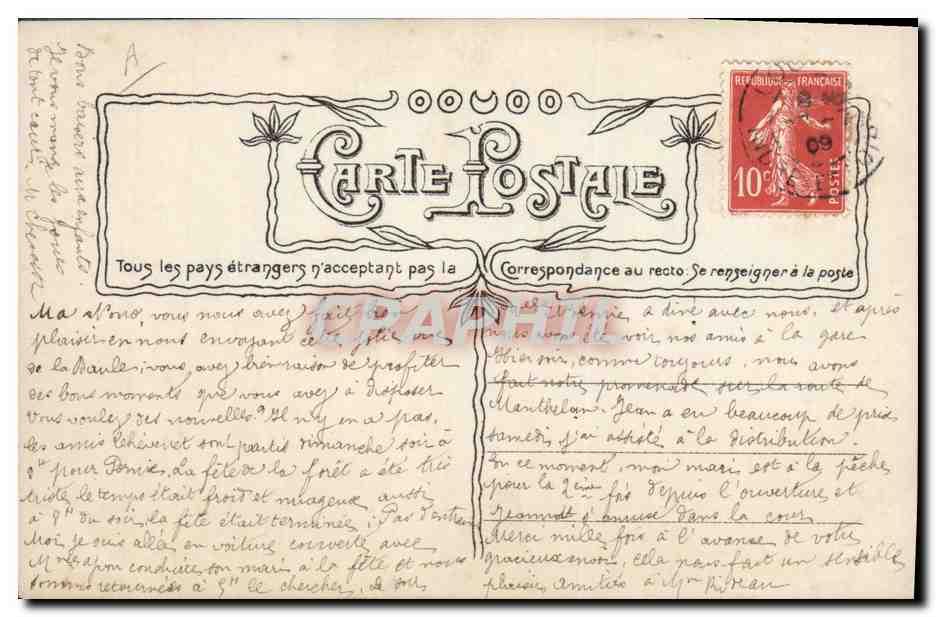 Bons baisers aux enfants.
Je vous mange les joues
de tout cœur M
A
CARTE POSTALE
REPUBLIQUE FRANÇAISE
10c POSTES
09
Tous les pays étrangers n'acceptant pas la Correspondance au recto. Se renseigner à la poste
CPAPHIL
Ma vous nous avez fait
plaisir en nous envoyant cette jolie vue
de la Baule; vous avez bien raison de profiter
des bons moments que vous avez à disposer
Vous voulez des nouvelles? Il n'y en a pas.
les amis sont partis dimanche soir à
9h pour La fête de la forêt a été très
triste le temps était froid et nuageux aussi
à 9h du soir la fête était terminée; Pas d'entrain
Moi je suis allée en voiture couverte avec
M conduire son mari à la fête et nous
sommes retournées à 5h le chercher, le soir
a diné avec nous, et après
nous avons été voir nos amis à la gare
Hier soir, comme toujours, nous avons
fait notre promenade sur la route de
Manthelan. Jean a eu beaucoup de prix
samedi, j'ai assisté à la distribution.
En ce moment, mon mari est à la pêche
pour la 2ème fois depuis l'ouverture et
s'amuse dans la cour
Merci mille fois à l'avance de votre
gracieux envoi, cela fait un sensible
plaisir, amitiés à Mme